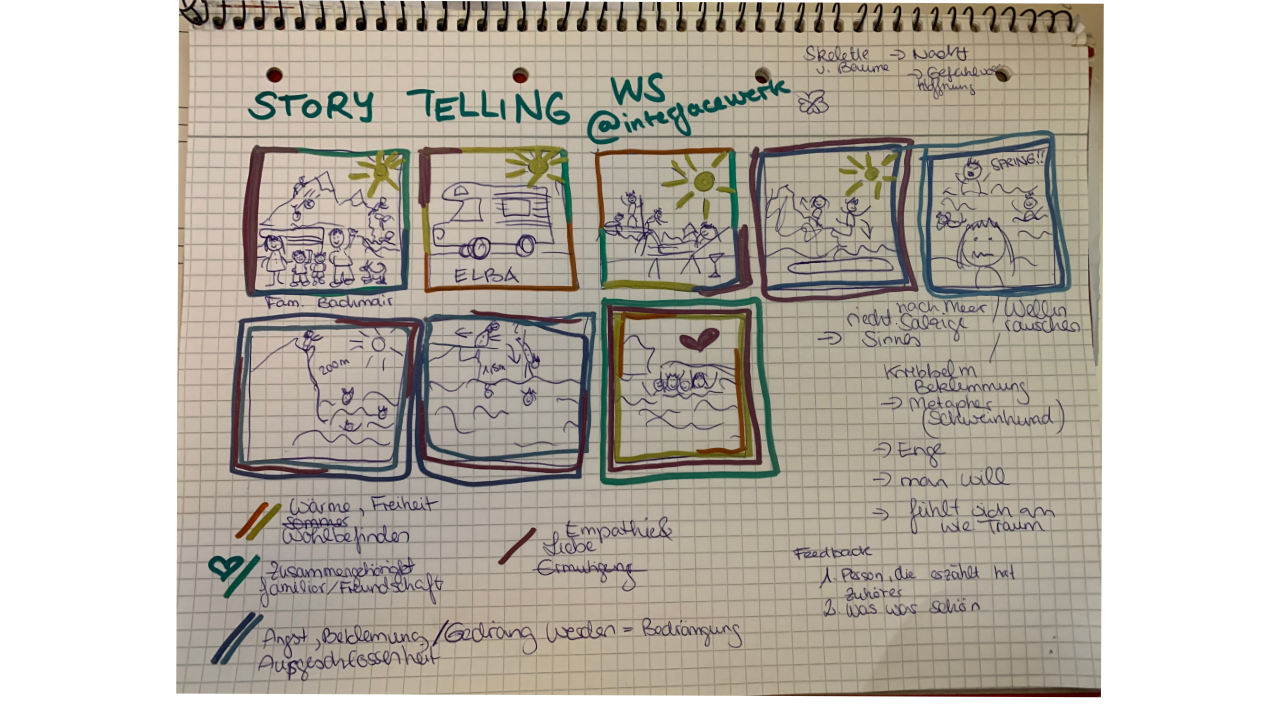 Skelette → Nacht
u. Bäume → Gefahr
Hoffnung
STORY TELLING WS
@interfacewerk
SPRING!!
ELBA
Fam. Bachmair
nach Meer / Wellen
riecht Salzige rauschen
→ Sinnes
200m
1,5m
?
Kribbeln
Beklemmung
→ Metapher
(Schweinhund)
→ Enge
→ man will
→ fühlt sich an
wie Traum
Wärme, Freiheit
Sommer
Wohlbefinden
Empathie &
Liebe
Ermutigung
Zusammengehörigkt
familiär/Freundschaft
Angst, Beklemung, /Gedräng werden = Bedrängung
Ausgeschlossenheit
Feedback
1. Person, die erzählt hat
Zuhörer
2. was war schön